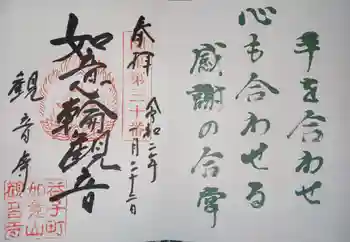 手を合わせ
心も合わせる
感謝の合掌
奉拝
第二十番
令和二年
月二十二日
如意輪観音
観音寺
益子町
如意山
観音寺